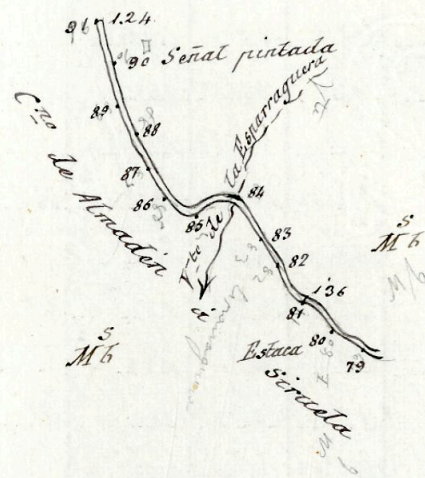 91 1.24.
90 Señal pintada
89
88
87
86
85
84
83
82
1'36
81
80
79
Cno de Almadén
Vto de la Esparraguera
á
Estaca
Siruela
S
M b
S
M b